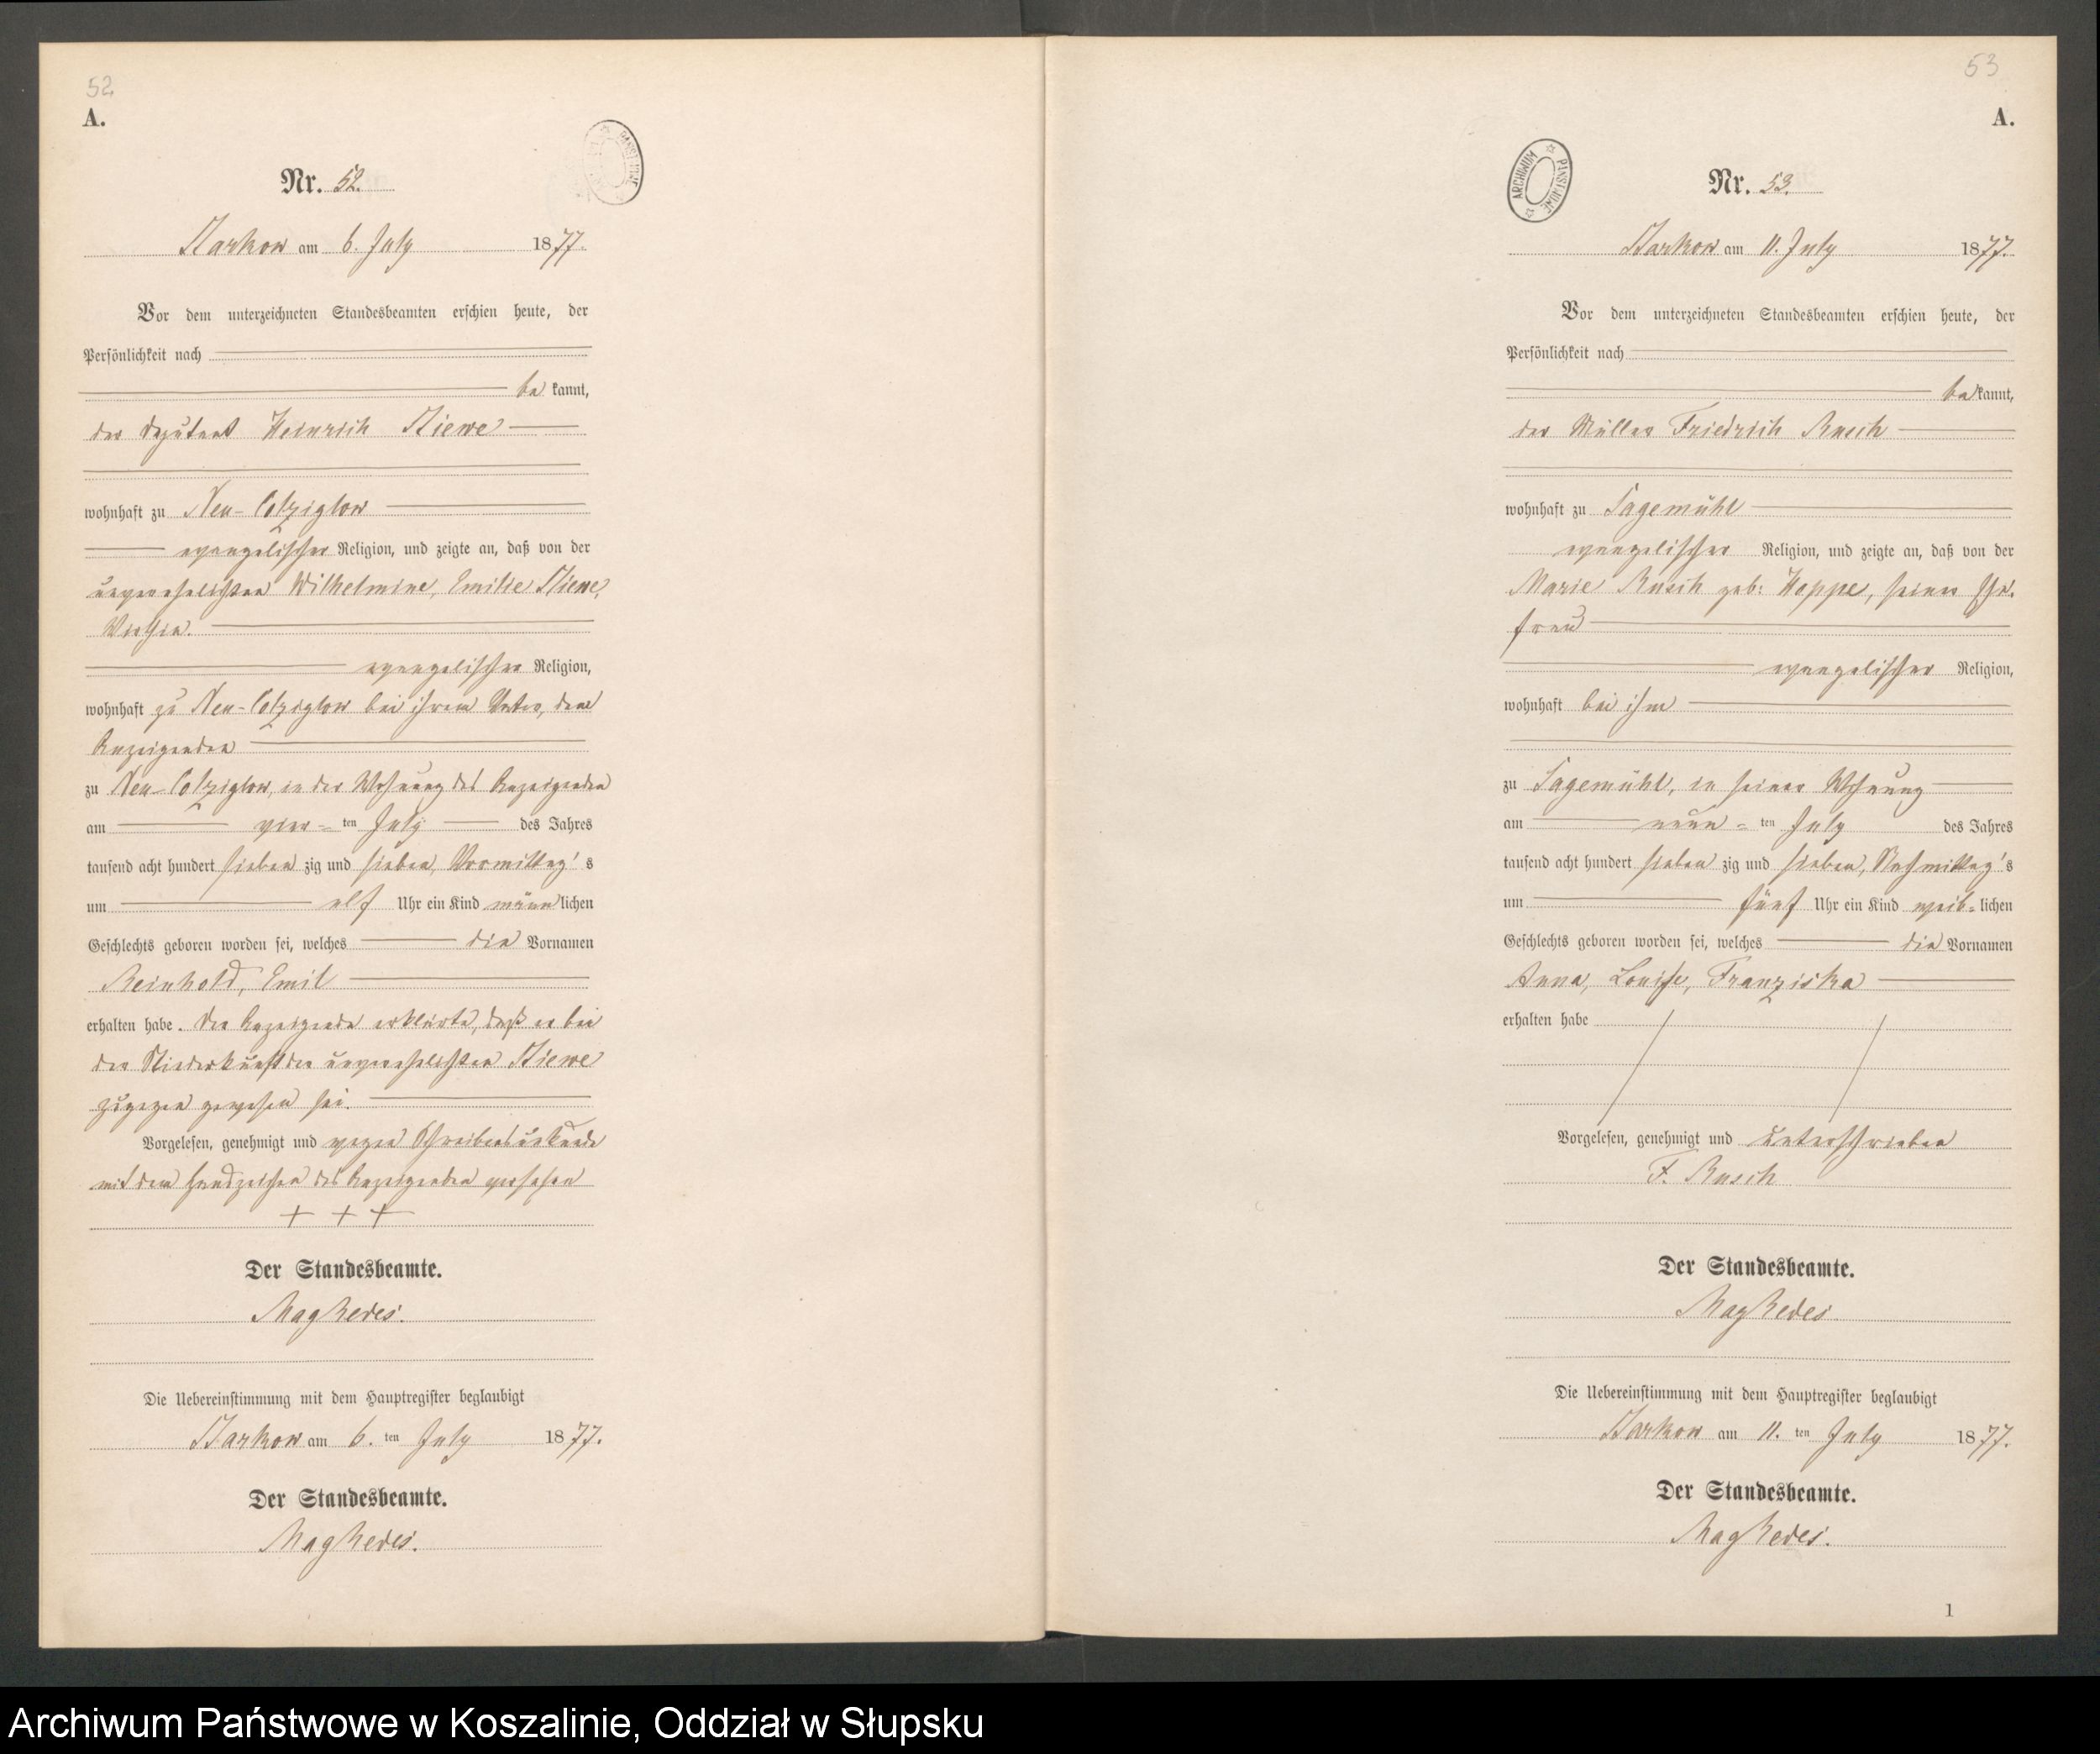 52
A.
Nr. 52.
Starkow am 6. July 1877.
Vor dem unterzeichneten Standesbeamten erschien heute, der
Persönlichkeit nach
be kannt,
der Deputant Heinrich Stiewe
wohnhaft zu Neu-Cotziglow
evangelischer Religion, und zeigte an, daß von der
unverehelichten Wilhelmine, Emilie Stiewe,
evangelischer Religion,
wohnhaft zu Neu-Cotziglow bei ihrem Vater, dem
Anzeigenden
zu Neu-Cotziglow, in der Wohnung des Anzeigenden
am vier-ten July des Jahres
tausend acht hundert sieben zig und sieben, Vormittag's
um elf Uhr ein Kind männlichen
Geschlechts geboren worden sei, welches die Vornamen
Reinhold, Emil
erhalten habe. Der Anzeigende erklärte, daß er bei
der Niederkunft der unverehelichten Stiewe
zugegen gewesen sei.
Vorgelesen, genehmigt und wegen Schreibensunkunde
mit dem Handzeichen des Anzeigenden versehen
+ + +
Der Standesbeamte.
Magkedei.
Die Uebereinstimmung mit dem Hauptregister beglaubigt
Starkow am 6. ten July 1877.
Der Standesbeamte.
Magkedei.
53
A.
ARCHIWUM PAŃSTWOWE
Nr. 53.
Starkow am 11. July 1877.
Vor dem unterzeichneten Standesbeamten erschien heute, der
Persönlichkeit nach
be kannt,
der Müller Friedrich Rusch
wohnhaft zu Sagemühl
evangelischer Religion, und zeigte an, daß von der
Marie Rusch geb: Hoppe, seiner Ehe-
frau
evangelischer Religion,
wohnhaft bei ihm
zu Sagemühl, in seiner Wohnung
am neun-ten July des Jahres
tausend acht hundert sieben zig und sieben, Nachmittag's
um fünf Uhr ein Kind weib-lichen
Geschlechts geboren worden sei, welches die Vornamen
Anna, Louise, Franziska
erhalten habe
Vorgelesen, genehmigt und unterschrieben
F. Rusch
Der Standesbeamte.
Magkedei
Die Uebereinstimmung mit dem Hauptregister beglaubigt
Starkow am 11. ten July 1877.
Der Standesbeamte.
Magkedei.
1
Archiwum Państwowe w Koszalinie, Oddział w Słupsku